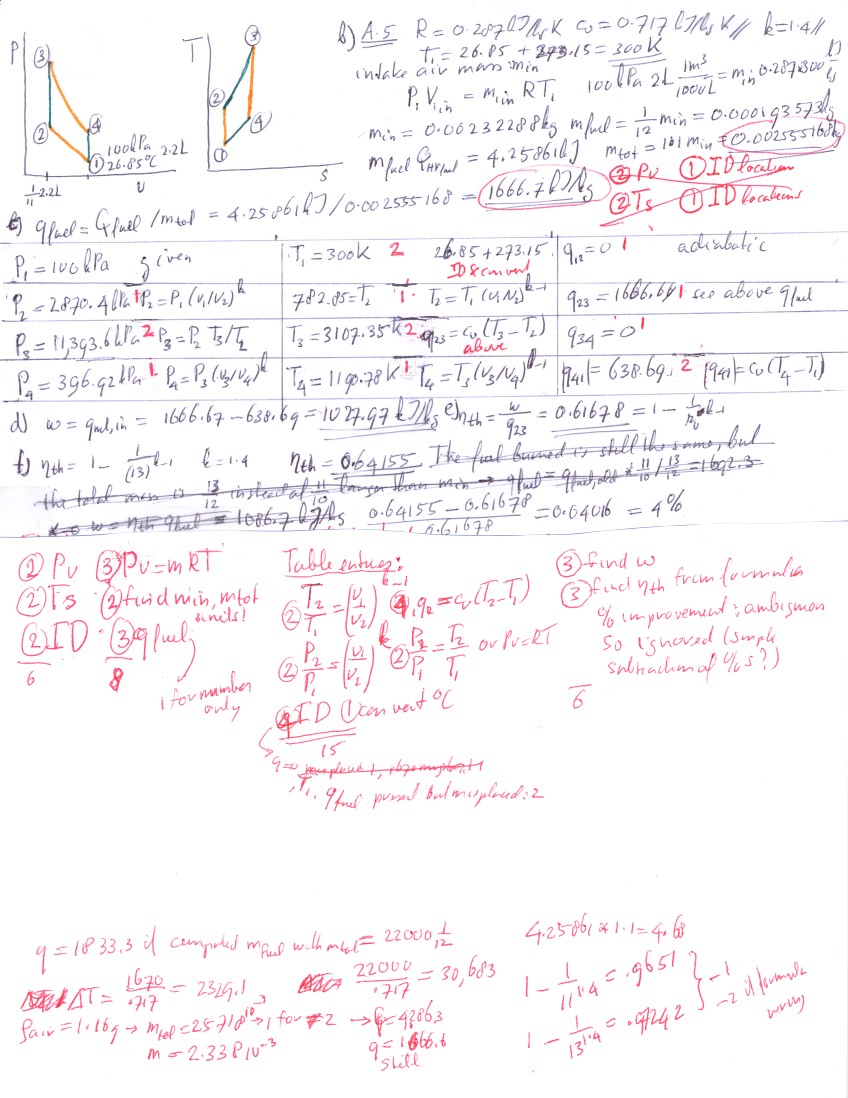 P
③
②
④
①
100kPa 2.2L
26.85°C
1/11 2.2L
v
T
③
②
④
①
s
b) A.5 R = 0.287 kJ/kg K cv = 0.717 kJ/kg K // k=1.4 //
T1 = 26.85 + 273.15 = 300K
intake air mass min
P1 V1in = min RT1 100kPa 2L 1m³/1000L = min 0.287 300 kJ/kg
min = 0.0023228 8kg mfuel = 1/12 min = 0.000193573kg
mfuel qHVfuel = 4.25861kJ mtot = 1.1 min = 0.002555168kg
② Pv ① ID location
② Ts ① ID locations
c) qfuel = Qfuel / mtot = 4.25861kJ / 0.002555168 = 1666.7 kJ/kg
P1 = 100kPa given
T1 = 300K 2 26.85+273.15
ID & convert
q12 = 0 1 adiabatic
P2 = 2870.4kPa 1 P2 = P1 (v1/v2)^k
782.85 = T2 1 T2 = T1 (v1/v2)^k-1
q23 = 1666.67 1 see above qfuel
P3 = 11,393.6kPa 2 P3 = P2 T3/T2
T3 = 3107.35K 2 q23 = cv (T3 - T2)
above
q34 = 0 1
P4 = 396.92kPa 1 P4 = P3 (v3/v4)^k
T4 = 1190.78K 1 T4 = T3 (v3/v4)^k-1
|q41| = 638.69 2 |q41| = cv (T4 - T1)
d) w = qnet,in = 1666.67 - 638.69 = 1027.97 kJ/kg e) ηth = w/q23 = 0.61678 = 1 -
f) ηth = 1 - 1/(13)^k-1 k = 1.4 ηth = 0.64155 The fuel burned is still the same, but
the total mass is 13/12 instead of 11/10 larger than min → qfuel = qfuel,old * 11/10 / 13/12 = 1692.3
w = ηth qfuel = 1086.7 kJ/kg 0.64155 - 0.61678 / 0.61678 = 0.04016 = 4%
② Pv ③ Pv=mRT
② Ts ② find min, mtot
units!
② ID ③ qfuel
6 8
1 for number
only
Table entries:
② T2/T1 = (v1/v2)^k-1 ④ q12 = cv (T2-T1)
② P2/P1 = (v1/v2)^k ② P2/P1 = T2/T1 or Pv=RT
④ ID ① convert °C
15
q=0 misplaced 1,
T1, qfuel pursed but misplaced: 2
③ find w
③ find ηth from formulas
% improvement: ambiguous
so ignored (simple
subtraction of %s?)
6
q = 1833.3 if computed mfuel with mtot = 22000 1/12
ΔT = 1670/.717 = 2329.1
22000/.717 = 30,683
ρair = 1.169 → mtot = 2.5718 → 1 for 2 →
m = 2.338 10^-3
q = 1666.6
still
4.25861 * 1.1 = 4.68
1 - 1/11^1.4 = .9651
1 - 1/13^1.4 = .97242
-1
-2 if formula
wrong